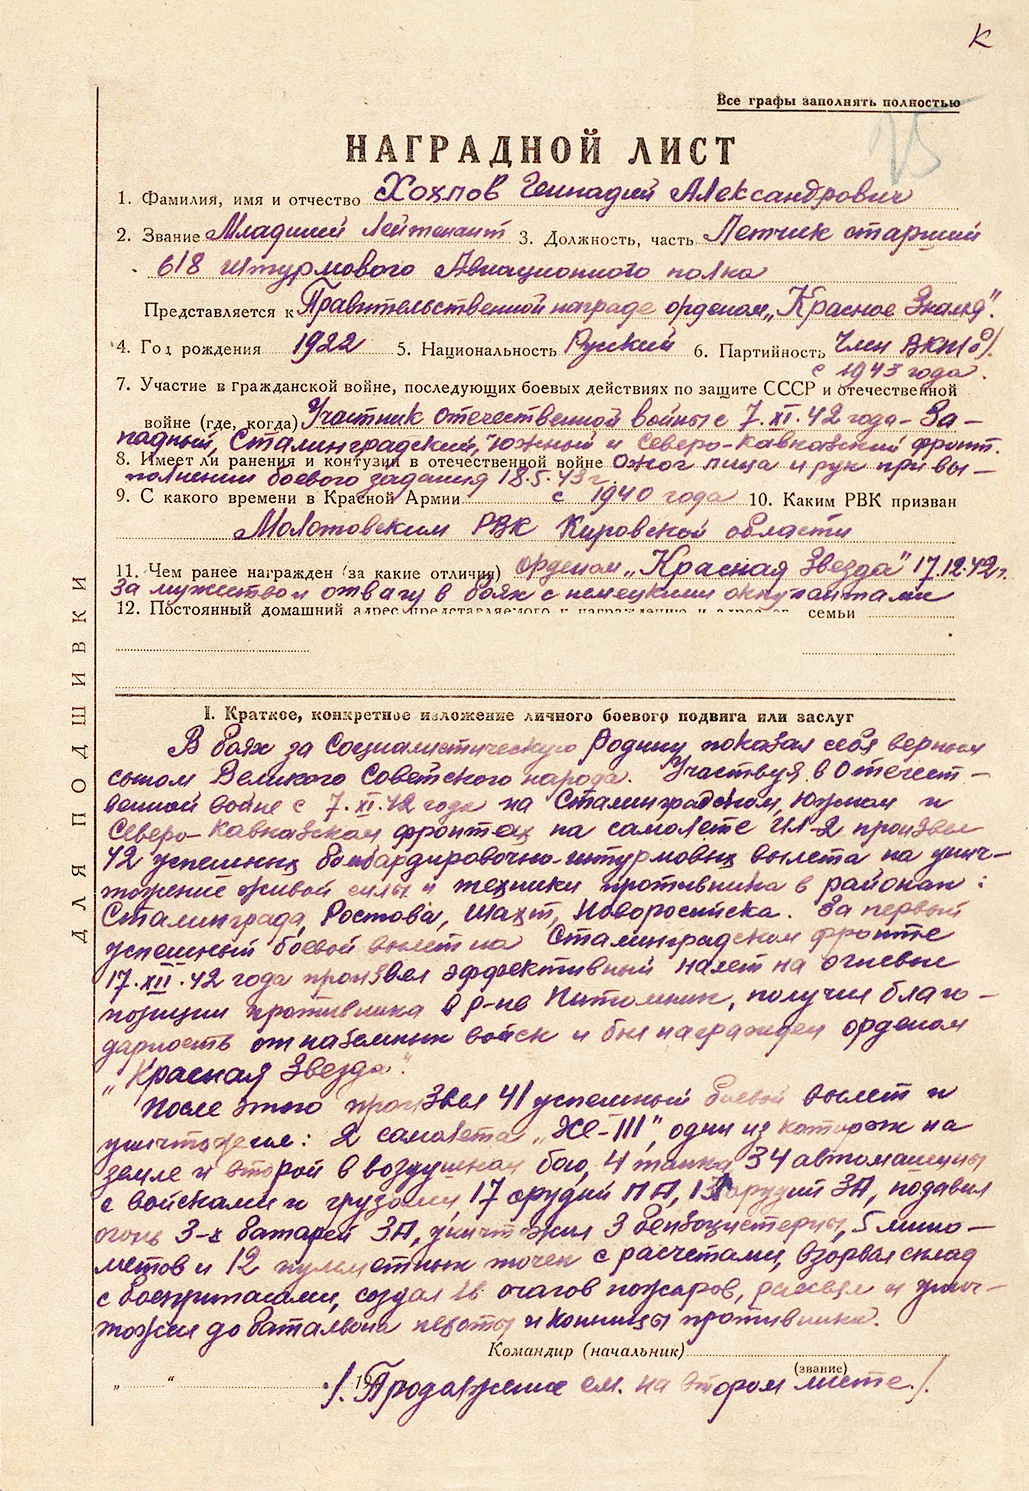 К
Все графы заполнять полностью
НАГРАДНОЙ ЛИСТ
1. Фамилия, имя и отчество Хохлов Геннадий Александрович
2. Звание Младший Лейтенант 3. Должность, часть Летчик старший
618 штурмового Авиационного полка
Представляется к Правительственной награде орденом „Красное Знамя".
4. Год рождения 1922 5. Национальность Русский 6. Партийность Член ВКП(б)
с 1943 года.
7. Участие в гражданской войне, последующих боевых действиях по защите СССР и отечественной
войне (где, когда) Участник отечественной войны с 7.XI.42 года - За-
падный, Сталинградский, Южный и Северо-Кавказский фронт.
8. Имеет ли ранения и контузии в отечественной войне Ожог лица и рук при вы-
полнении боевого задания 18.5.43 г.
9. С какого времени в Красной Армии с 1940 года 10. Каким РВК призван
Молотовским РВК Кировской области
11. Чем ранее награжден (за какие отличия) орденом „Красная Звезда" 17.12.42 г.
за мужество и отвагу в боях с немецкими оккупантами
12. Постоянный домашний адрес представляемого к награждению и адрес семьи
ДЛЯ ПОДШИВКИ
I. Краткое, конкретное изложение личного боевого подвига или заслуг
В боях за Социалистическую Родину показал себя верным
сыном Великого Советского народа. Участвуя в Отечест-
венной войне с 7.XI.42 года на Сталинградском, Южном и
Северо-Кавказском фронтах на самолете ИЛ-2 произвел
42 успешных бомбардировочно-штурмовых вылета на унич-
тожение живой силы и техники противника в районах:
Сталинграда, Ростова, Шахт, Новоросийска. За первый
успешный боевой вылет на Сталинградском фронте
17.XII.42 года произвел эффективный налет на огневые
позиции противника в р-не Питомник, получил благо-
дарность от наземных войск и был награжден орденом
„Красная Звезда".
После этого произвел 41 успешный боевой вылет и
уничтожил: 2 самолета „Хе-III", один из которых на
земле и второй в воздушном бою, 4 танка, 34 автомашины
с войсками и грузами, 17 орудий ПА, орудий ЗА, подавил
огонь 3-х батарей ЗА, уничтожил 3 бензоцистерны, 5 мино-
метов и 12 пулеметных точек с расчетами, взорвал склад
с боеприпасами, создал очагов пожаров, рассеял и унич-
тожил до батальона пехоты и конницы противника.
Командир (начальник)
(звание)
„ " 19
/. Продолжение см. на втором листе./.